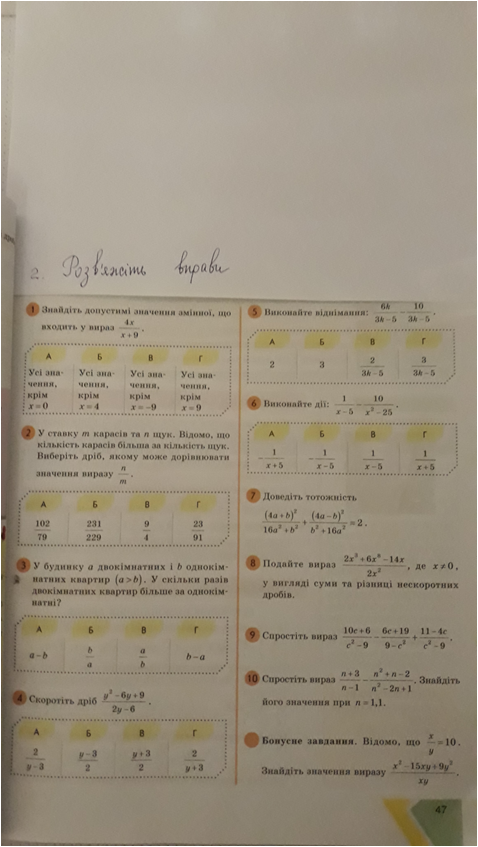 2. Розв'яжіть вправи
1 Знайдіть допустимі значення змінної, що
входить у вираз 4x/(x+9).
А Б В Г
Усі зна- Усі зна- Усі зна- Усі зна-
чення, чення, чення, чення,
крім крім крім крім
x=0 x=4 x=-9 x=9
2 У ставку m карасів та n щук. Відомо, що
кількість карасів більша за кількість щук.
Виберіть дріб, якому може дорівнювати
значення виразу n/m.
А Б В Г
102/79 231/229 9/4 23/91
3 У будинку a двокімнатних і b однокім-
натних квартир (a>b). У скільки разів
двокімнатних квартир більше за однокім-
натні?
А Б В Г
a-b b/a a/b b-a
4 Скоротіть дріб (y²-6y+9)/(2y-6).
А Б В Г
2/(y-3) (y-3)/2 (y+3)/2 2/(y+3)
5 Виконайте віднімання: 6k/(3k-5) - 10/(3k-5).
А Б В Г
2 3 2/(3k-5) 3/(3k-5)
6 Виконайте дії: 1/(x-5) - 10/(x²-25).
А Б В Г
-1/(x+5) -1/(x-5) 1/(x-5) 1/(x+5)
7 Доведіть тотожність
(4a+b)²/(16a²+b²) + (4a-b)²/(b²+16a²) = 2.
8 Подайте вираз, де x≠0,
у вигляді суми та різниці нескоротних
дробів.
9 Спростіть вираз (10c+6)/(c²-9) - (6c+19)/(9-c²) + (11-4c)/(c²-9).
10 Спростіть вираз (n+3)/(n-1) - (n²+n-2)/(n²-2n+1). Знайдіть
його значення при n=1,1.
Бонусне завдання. Відомо, що x/y=10.
Знайдіть значення виразу (x²-15xy+9y²)/xy.
47